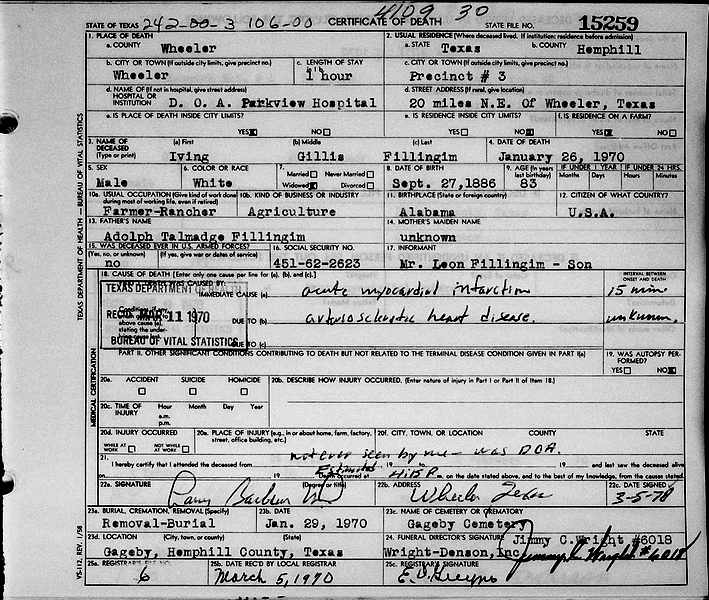 4109 30
STATE OF TEXAS 242-00-3 106-00 CERTIFICATE OF DEATH STATE FILE NO. 15259
1. PLACE OF DEATH 2. USUAL RESIDENCE (Where deceased lived. If institution: residence before admission)
a. COUNTY Wheeler a. STATE Texas b. COUNTY Hemphill
b. CITY OR TOWN (If outside city limits, give precinct no.) c. LENGTH OF STAY c. CITY OR TOWN (If outside city limits, give precinct no.)
Wheeler 1 hour Precinct # 3
d. NAME OF (If not in hospital, give street address) d. STREET ADDRESS (If rural, give location)
HOSPITAL OR INSTITUTION D. O. A. Parkview Hospital 20 miles N.E. Of Wheeler, Texas
e. IS PLACE OF DEATH INSIDE CITY LIMITS? e. IS RESIDENCE INSIDE CITY LIMITS? f. IS RESIDENCE ON A FARM?
YES NO YES NO YES NO
3. NAME OF DECEASED (Type or print) (a) First (b) Middle (c) Last 4. DATE OF DEATH
Iving Gillis Fillingim January 26, 1970
5. SEX 6. COLOR OR RACE 7. Married Never Married Widowed Divorced 8. DATE OF BIRTH 9. AGE (In years last birthday) IF UNDER 1 YEAR IF UNDER 24 HRS.
Months Days Hours Minutes
Male White Sept. 27,1886 83
10a. USUAL OCCUPATION (Give kind of work done during most of working life, even if retired) 10b. KIND OF BUSINESS OR INDUSTRY 11. BIRTHPLACE (State or foreign country) 12. CITIZEN OF WHAT COUNTRY?
Farmer-Rancher Agriculture Alabama U.S.A.
13. FATHER'S NAME 14. MOTHER'S MAIDEN NAME
Adolph Talmadge Fillingim unknown
15. WAS DECEASED EVER IN U.S. ARMED FORCES? 16. SOCIAL SECURITY NO. 17. INFORMANT
(Yes, no, or unknown) (If yes, give war or dates of service)
no 451-62-2623 Mr. Leon Fillingim - Son
18. CAUSE OF DEATH [Enter only one cause per line for (a), (b), and (c).] INTERVAL BETWEEN ONSET AND DEATH
PART I. DEATH WAS CAUSED BY:
IMMEDIATE CAUSE (a) acute myocardial infarction 15 min
TEXAS DEPARTMENT OF HEALTH
REC'D MAR 11 1970
BUREAU OF VITAL STATISTICS
DUE TO (b) arteriosclerotic heart disease. unknown
above cause (a), stating the under-
DUE TO (c)
PART II. OTHER SIGNIFICANT CONDITIONS CONTRIBUTING TO DEATH BUT NOT RELATED TO THE TERMINAL DISEASE CONDITION GIVEN IN PART I(a) 19. WAS AUTOPSY PERFORMED?
YES NO
MEDICAL CERTIFICATION
20a. ACCIDENT SUICIDE HOMICIDE 20b. DESCRIBE HOW INJURY OCCURRED. (Enter nature of injury in Part I or Part II of Item 18.)
20c. TIME OF INJURY Hour Month Day Year
a.m.
p.m.
20d. INJURY OCCURRED 20e. PLACE OF INJURY (e.g., in or about home, farm, factory, street, office building, etc.) 20f. CITY, TOWN, OR LOCATION COUNTY STATE
WHILE AT WORK NOT WHILE AT WORK
not ever seen by me - was DOA.
21. I hereby certify that I attended the deceased from 19 to 19 and last saw the deceased alive
on 19 Estimated Death occurred at m. on the date stated above, and to the best of my knowledge, from the causes stated.
22a. SIGNATURE (Degree or title) 22b. ADDRESS 22c. DATE SIGNED
Wheeler Texas 3-5-70
23a. BURIAL, CREMATION, REMOVAL (Specify) 23b. DATE 23c. NAME OF CEMETERY OR CREMATORY
Removal-Burial Jan. 29, 1970 Gageby Cemetery
23d. LOCATION (City, town, or county) (State) 24. FUNERAL DIRECTOR'S SIGNATURE Jimmy C. Wright #6018
Gageby, Hemphill County, Texas Wright-Denson, Inc. Jimmy C. Wright #6018
25a. REGISTRAR'S FILE NO. 25b. DATE REC'D BY LOCAL REGISTRAR 25c. REGISTRAR'S SIGNATURE
6 March 5, 1970
TEXAS DEPARTMENT OF HEALTH — BUREAU OF VITAL STATISTICS
VS-112, REV. 1/58